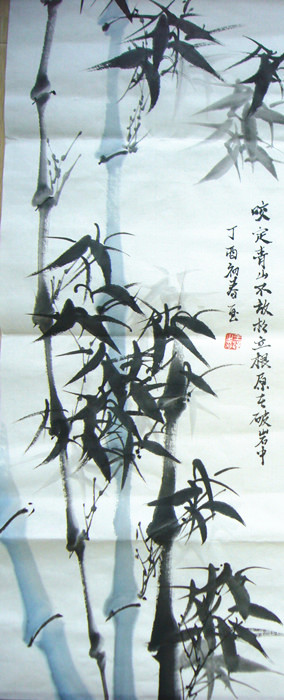 咬定青山不放松立根原在破岩中
丁酉初春画